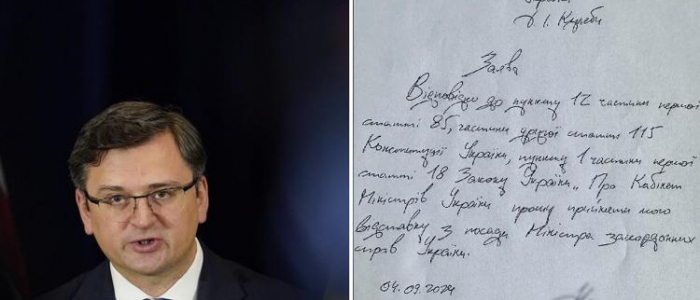 України
Д. І. Кулеби
Заява
Відповідно до пункту 12 частини першої
статті 85, частини другої статті 115
Конституції України, пункту 1 частини першої
статті 18 Закону України „Про Кабінет
Міністрів України прошу прийняти мою
відставку з посади Міністра закордонних
справ України.
04.09.2024